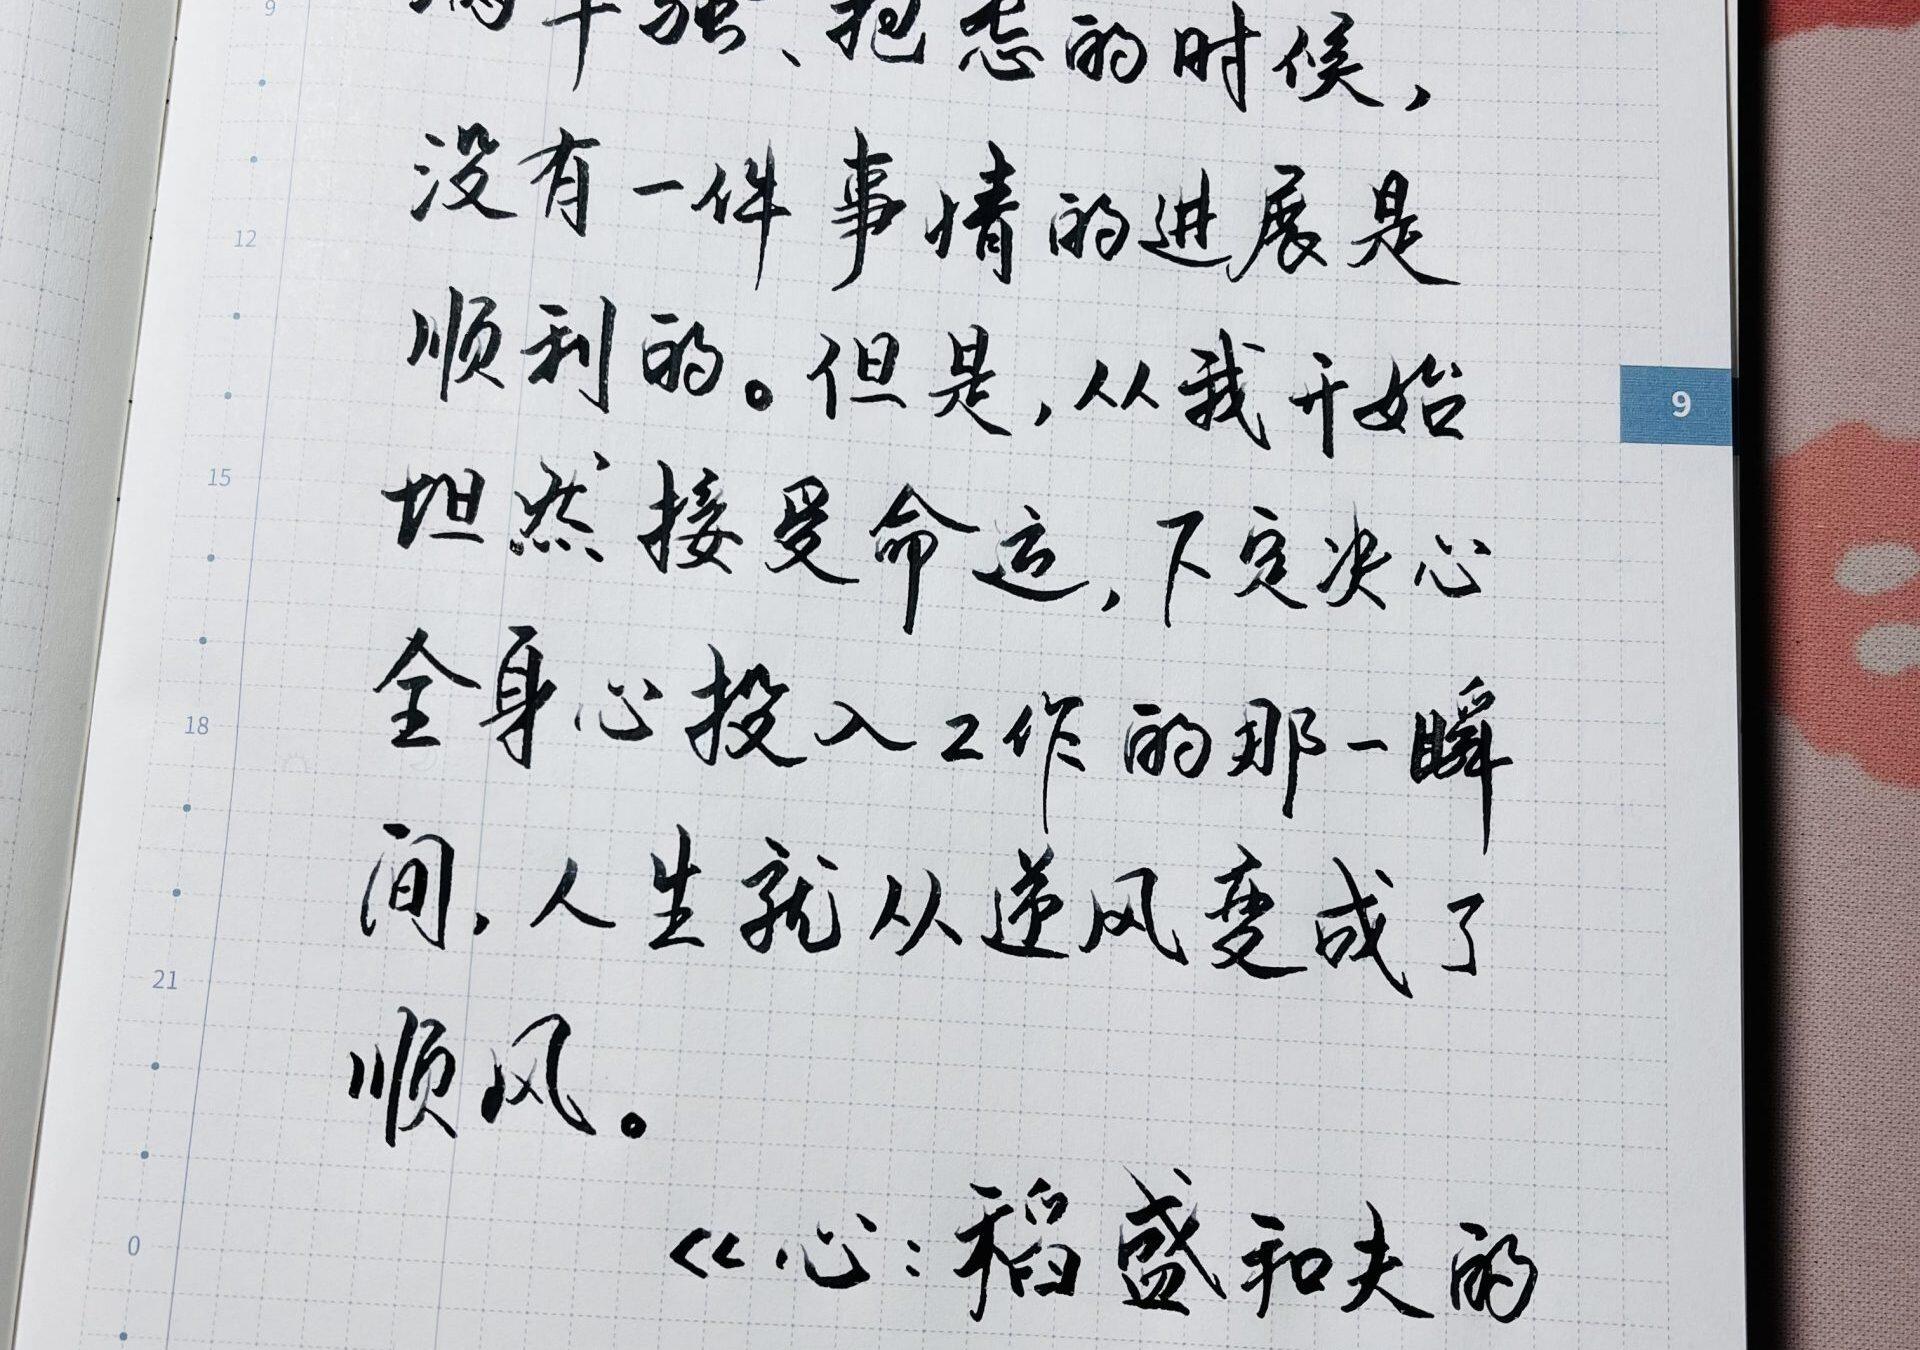 满牢骚、抱怨的时候,
没有一件事情的进展是
顺利的。但是,从我开始
坦然接受命运,下定决心
全身心投入工作的那一瞬
间,人生就从逆风变成了
顺风。
《心:稻盛和夫的
9
12
15
18
21
0
9